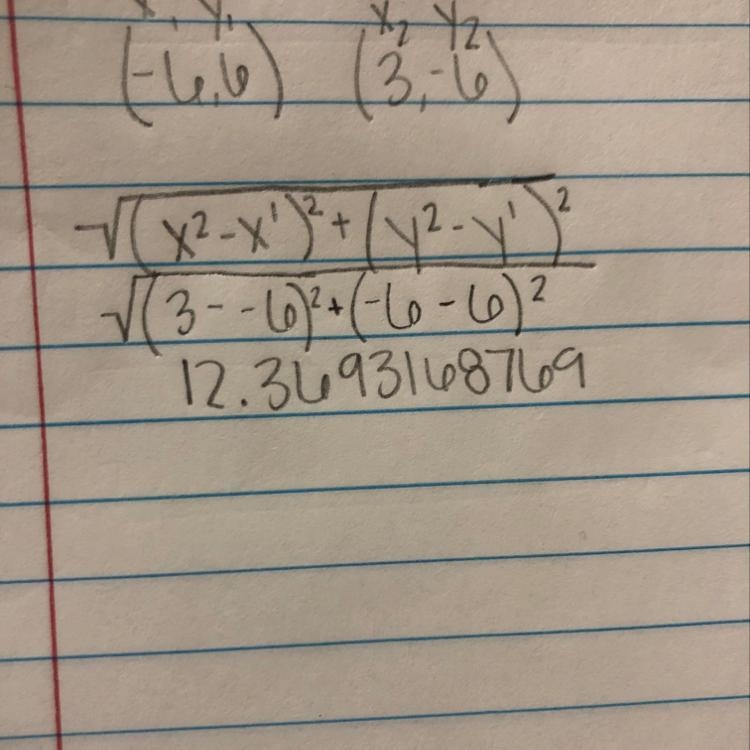 x₁ y₁ x₂ y₂
(-6,6) (3,-6)
√(x²-x¹)²+(y²-y¹)²
√(3--6)²+(-6-6)²
12.3693168769